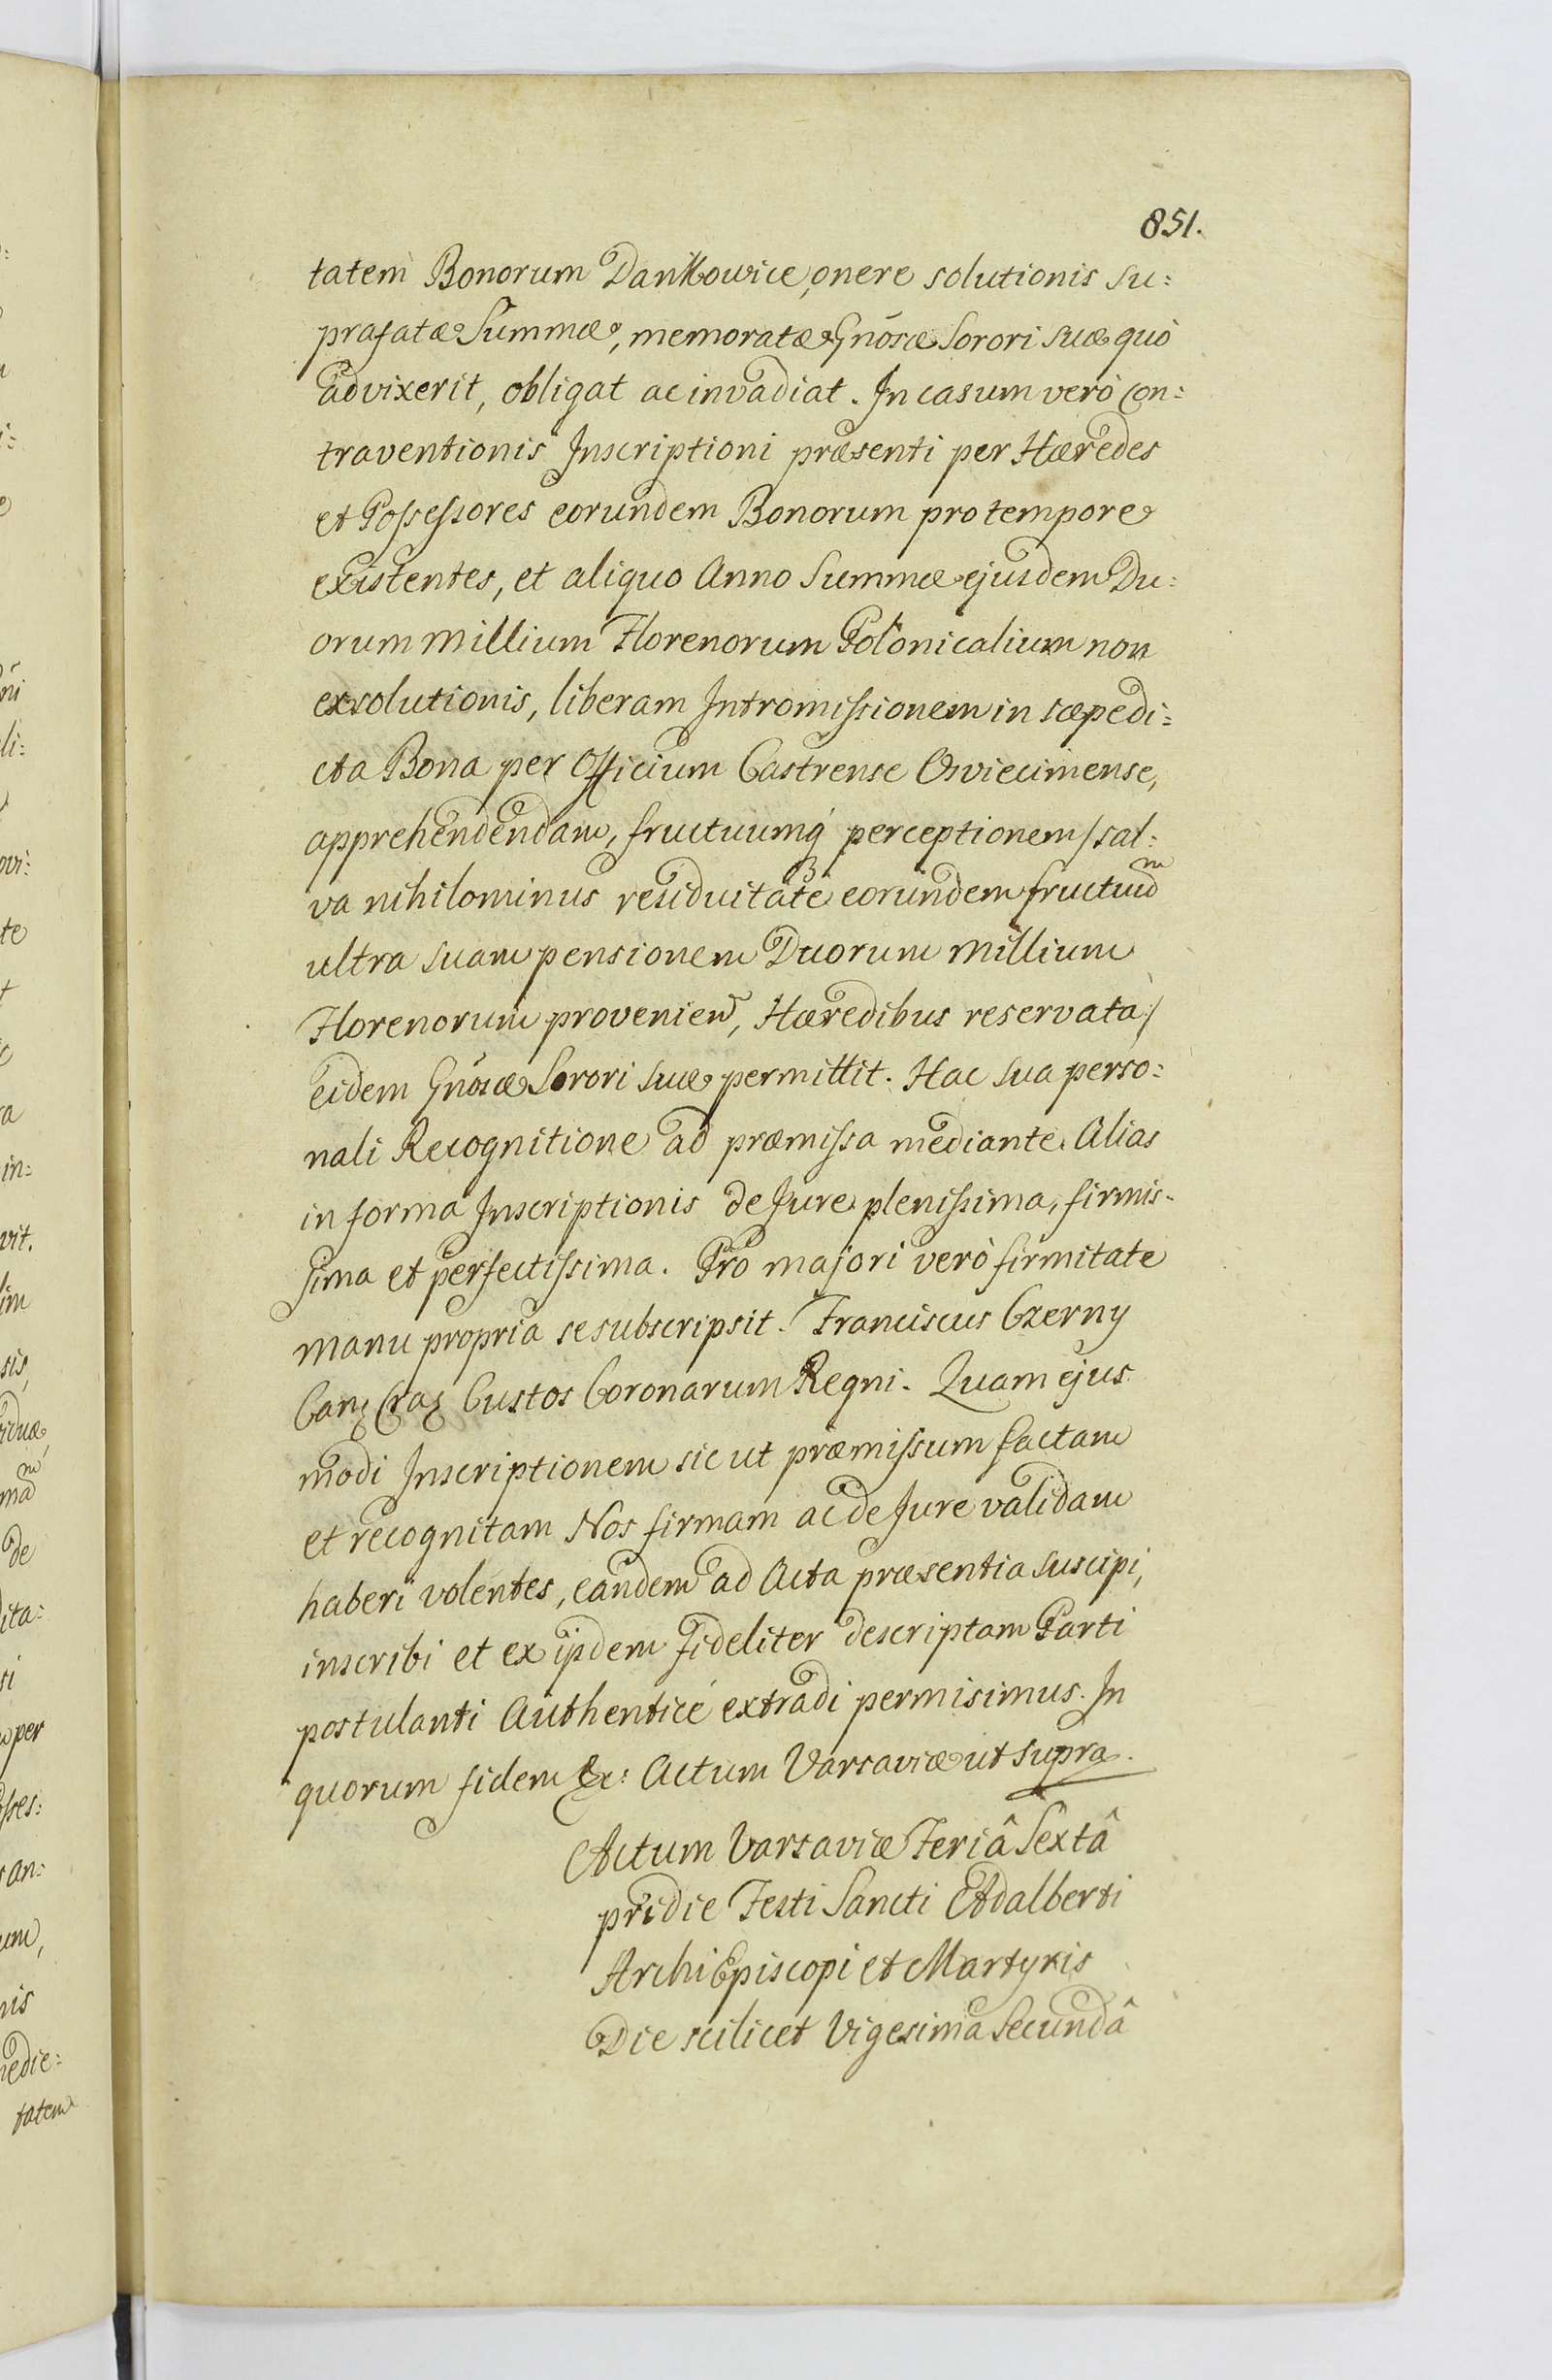 851.
tatem Bonorum Dankowice, onere solutionis su:
prafatæ Summæ, memoratæ Gnõsæ Sorori suæ quò
advixerit, obligat ac invadiat. In casum verò con:
traventionis Inscriptioni præsenti per Hæredes
et Possessores eorundem Bonorum pro tempore
existentes, et aliquo Anno Summæ ejusdem Du:
orum millium Florenorum Polonicalium non
exsolutionis, liberam Intromissionem in sæpedi:
cta Bona per Officium Castrense Osviecimense,
apprehendendam, fructuumq́ perceptionem /sal:
va nihilominus residuitate eorundem fructuũ
ultra suam pensionem Duorum millium
Florenorum provenieñ, Hæredibus reservata/
eidem Gnõsæ Sorori suæ permittit. Hac sua perso:
nali Recognitione ad præmissa mediante. Alias
in forma Inscriptionis de Jure plenissima, firmis-
sima et perfectissima. Pro majori verò firmitate
manu propria se subscripsit. Franciscus Czerny
Canz Craz Custos Coronarum Regni. Quam ejus
modi Inscriptionem sic ut præmissum factam
et recognitam Nos firmam ac de Jure validam
haberi volentes, eandem ad Acta præsentia suscipi,
inscribi et ex ijsdem fideliter descriptam Parti
postulanti Authenticé extradi permisimus. In
quorum fidem &c: Actum Varsaviæ ut supra.
Actum Varsaviæ Feriâ Sextâ
pridie Festi Sancti Adalberti
ArchiEpiscopi et Martyris
Die scilicet Vigesima Secundâ